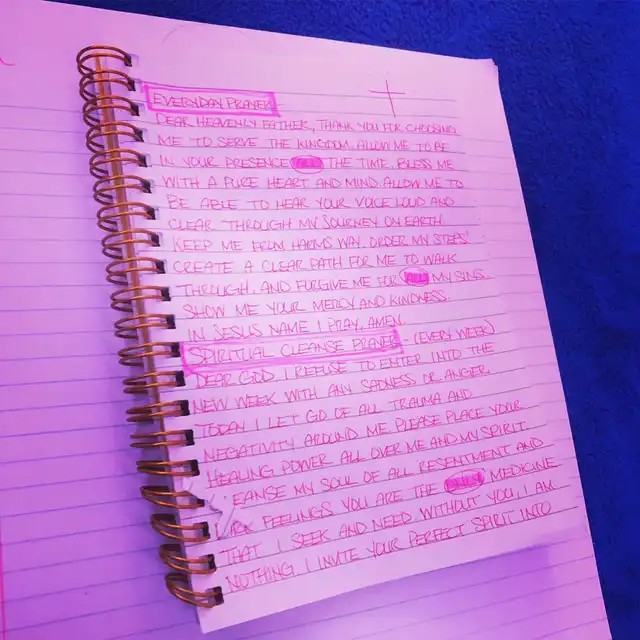 EVERYDAY PRAYER
DEAR HEAVENLY FATHER, THANK YOU FOR CHOOSING
ME TO SERVE THE KINGDOM. ALLOW ME TO BE
IN YOUR PRESENCE ALL THE TIME. BLESS ME
WITH A PURE HEART AND MIND. ALLOW ME TO
BE ABLE TO HEAR YOUR VOICE LOUD AND
CLEAR THROUGH MY JOURNEY ON EARTH.
KEEP ME FROM HARMS WAY. ORDER MY STEPS
CREATE A CLEAR PATH FOR ME TO WALK
THROUGH. AND FORGIVE ME FOR ALL MY SINS.
SHOW ME YOUR MERCY AND KINDNESS.
IN JESUS NAME I PRAY, AMEN.
SPIRITUAL CLEANSE PRAYER - (EVERY WEEK)
DEAR GOD I REFUSE TO ENTER INTO THE
NEW WEEK WITH ANY SADNESS OR ANGER.
TODAY I LET GO OF ALL TRAUMA AND
NEGATIVITY AROUND ME. PLEASE PLACE YOUR
HEALING POWER ALL OVER ME AND MY SPIRIT
EANSE MY SOUL OF ALL RESENTMENT AND
FEELINGS. YOU ARE THE ONLY MEDICINE
THAT I SEEK AND NEED. WITHOUT YOU, I AM
NOTHING. I INVITE YOUR PERFECT SPIRIT INTO